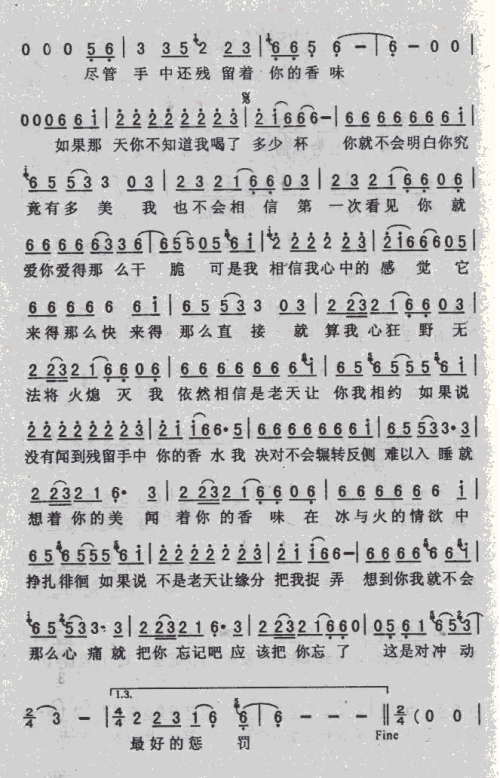 0 0 0 5 6 | 3 3 5 2 2 3 | 6 6 5 6 – | 6 – 0 0 |
尽管 手中还残 留着 你的香味
0 0 0 0 6 6 i | 2 2 2 2 2 2 2 3 | 2 i 6 6 6 – | 6 6 6 6 6 6 6 i |
如果那 天你不知道我喝了 多少杯 你就不会明白你究
6 5 5 3 3 0 3 | 2 3 2 1 6 6 0 3 | 2 3 2 1 6 6 0 6 |
竟有多美 我 也不会相信 第 一次看见 你就
6 6 6 6 6 3 3 6 | 6 5 5 0 5 6 i | 2 2 2 2 2 3 | 2 i 6 6 6 0 5 |
爱你爱得那么干 脆 可是我 相信我心中的 感觉 它
6 6 6 6 6 6 i | 6 5 5 3 3 0 3 | 2 2 3 2 1 6 6 0 3 |
来得那么快来得 那么直接 就 算我心狂野 无
2 2 3 2 1 6 6 0 6 | 6 6 6 6 6 6 6 i | 6 5 6 5 5 5 6 i |
法将火熄 灭 我 依然相信是老天让 你我相约 如果说
2 2 2 2 2 2 2 3 | 2 i i 6 6· 5 | 6 6 6 6 6 6 6 i | 6 5 5 3 3· 3 |
没有闻到残留手中 你的香水我 决对不会辗转反侧 难以入睡就
2 2 3 2 1 6· 3 | 2 2 3 2 1 6 6 0 6 | 6 6 6 6 6 6 i |
想着你的美 闻 着你的香味 在 冰与火的情欲中
6 5 6 5 5 5 6 i | 2 2 2 2 2 2 3 | 2 i i 6 6 – | 6 6 6 6 6 6 i |
挣扎徘徊 如果说 不是老天让缘分 把我捉弄 想到你我就不会
6 5 5 3 3· 3 | 2 2 3 2 1 6· 3 | 2 2 3 2 1 6 6 0 | 0 5 6 1 6 5 3 |
那么心痛就 把你忘记吧 应 该把你忘了 这是对冲动
2/4 3 – | 4/4 2 2 3 1 6 6 | 6 – – – || 2/4 (0 0 |
1.3.
最好的惩 罚 Fine